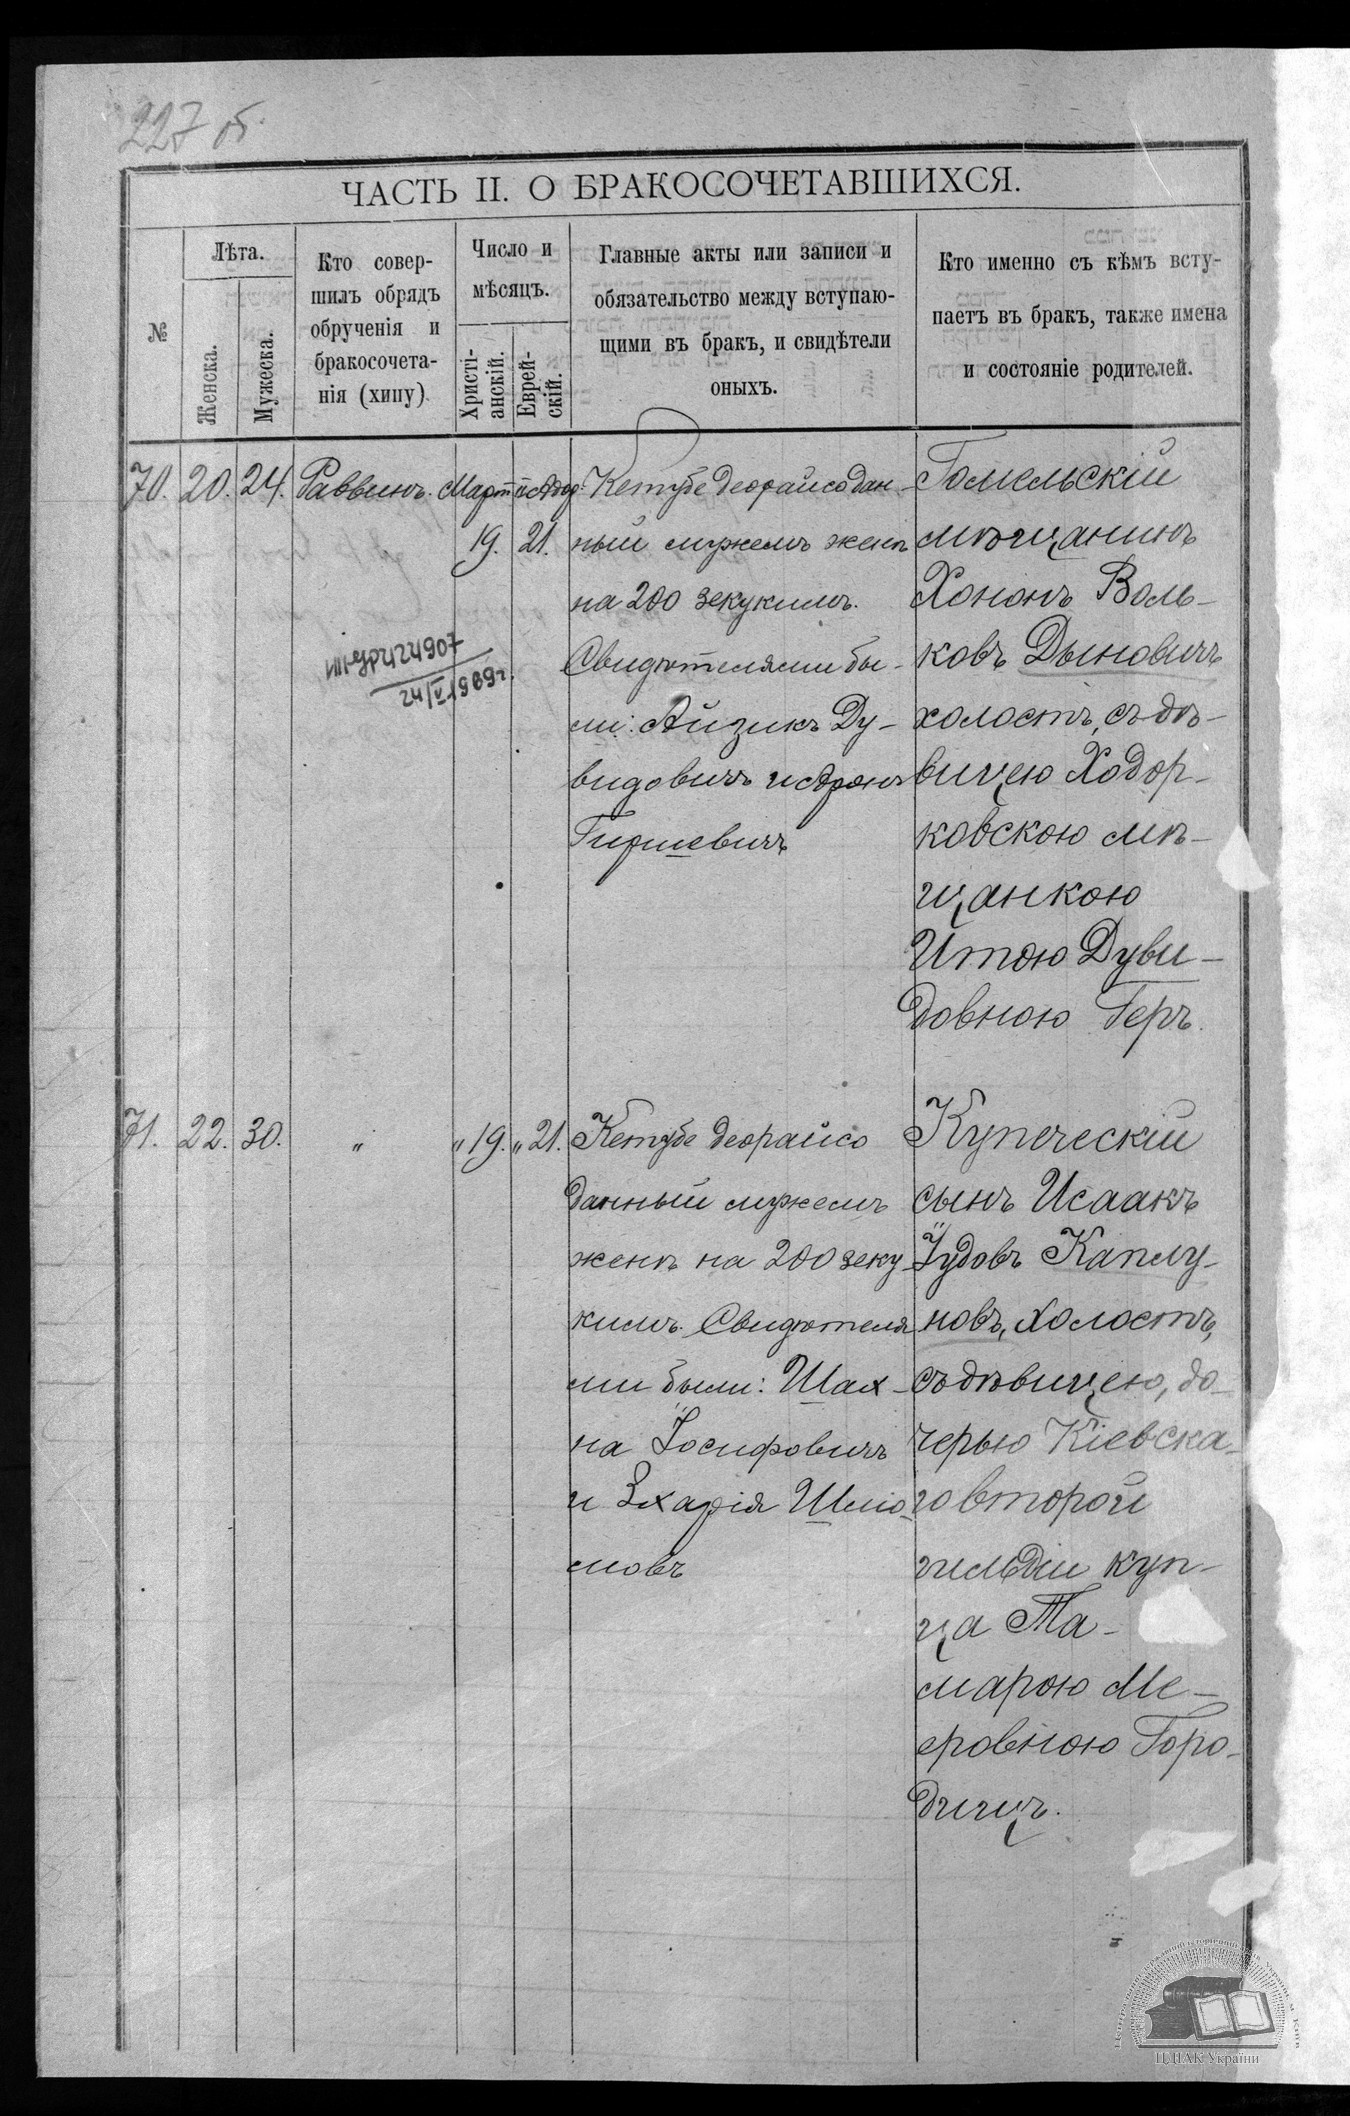 227 об.
ЧАСТЬ II. О БРАКОСОЧЕТАВШИХСЯ.
№
Лѣта.
Женска.
Мужеска.
Кто совер-
шилъ обрядъ
обрученія и
бракосочета-
нія (хипу)
Число и
мѣсяцъ.
Христі-
анскій.
Еврей-
скій.
Главные акты или записи и
обязательство между вступаю-
щими въ бракъ, и свидѣтели
оныхъ.
Кто именно съ кѣмъ всту-
паетъ въ бракъ, также имена
и состояніе родителей.
70. 20. 24. Раввинъ. Март
19. 21.
Кетубе деорайсо дан-
ный мужемъ женѣ
на 200 зекукимъ.
Свидѣтелями бы-
ли: Айзикъ Ду-
видовичъ и Аронъ
Гиршевичъ
Гомельскій
мѣщанинъ
Хононъ Воль-
ковъ Дыновичъ
холостъ, съ дѣ-
вицею Ходор-
ковскою мѣ-
щанкою
Итою Дуви-
довною Геръ.
III-
24/V 1989г.
71. 22. 30. „ „ 19. „ 21.
Кетубе деорайсо
данный мужемъ
женѣ на 200 зеку-
кимъ. Свидѣтеля
ми были: Шах-
на Іосифовичъ
и Зхарія Шліо-
мовъ
Купеческій
сынъ Исаакъ
Іудовъ Каплу-
новъ, холостъ,
съ дѣвицею, до-
черью Кіевска-
го второй
гильдіи куп-
ца Та-
марою Ме-
ровною Горо-
дищъ.
ЦДІАК України